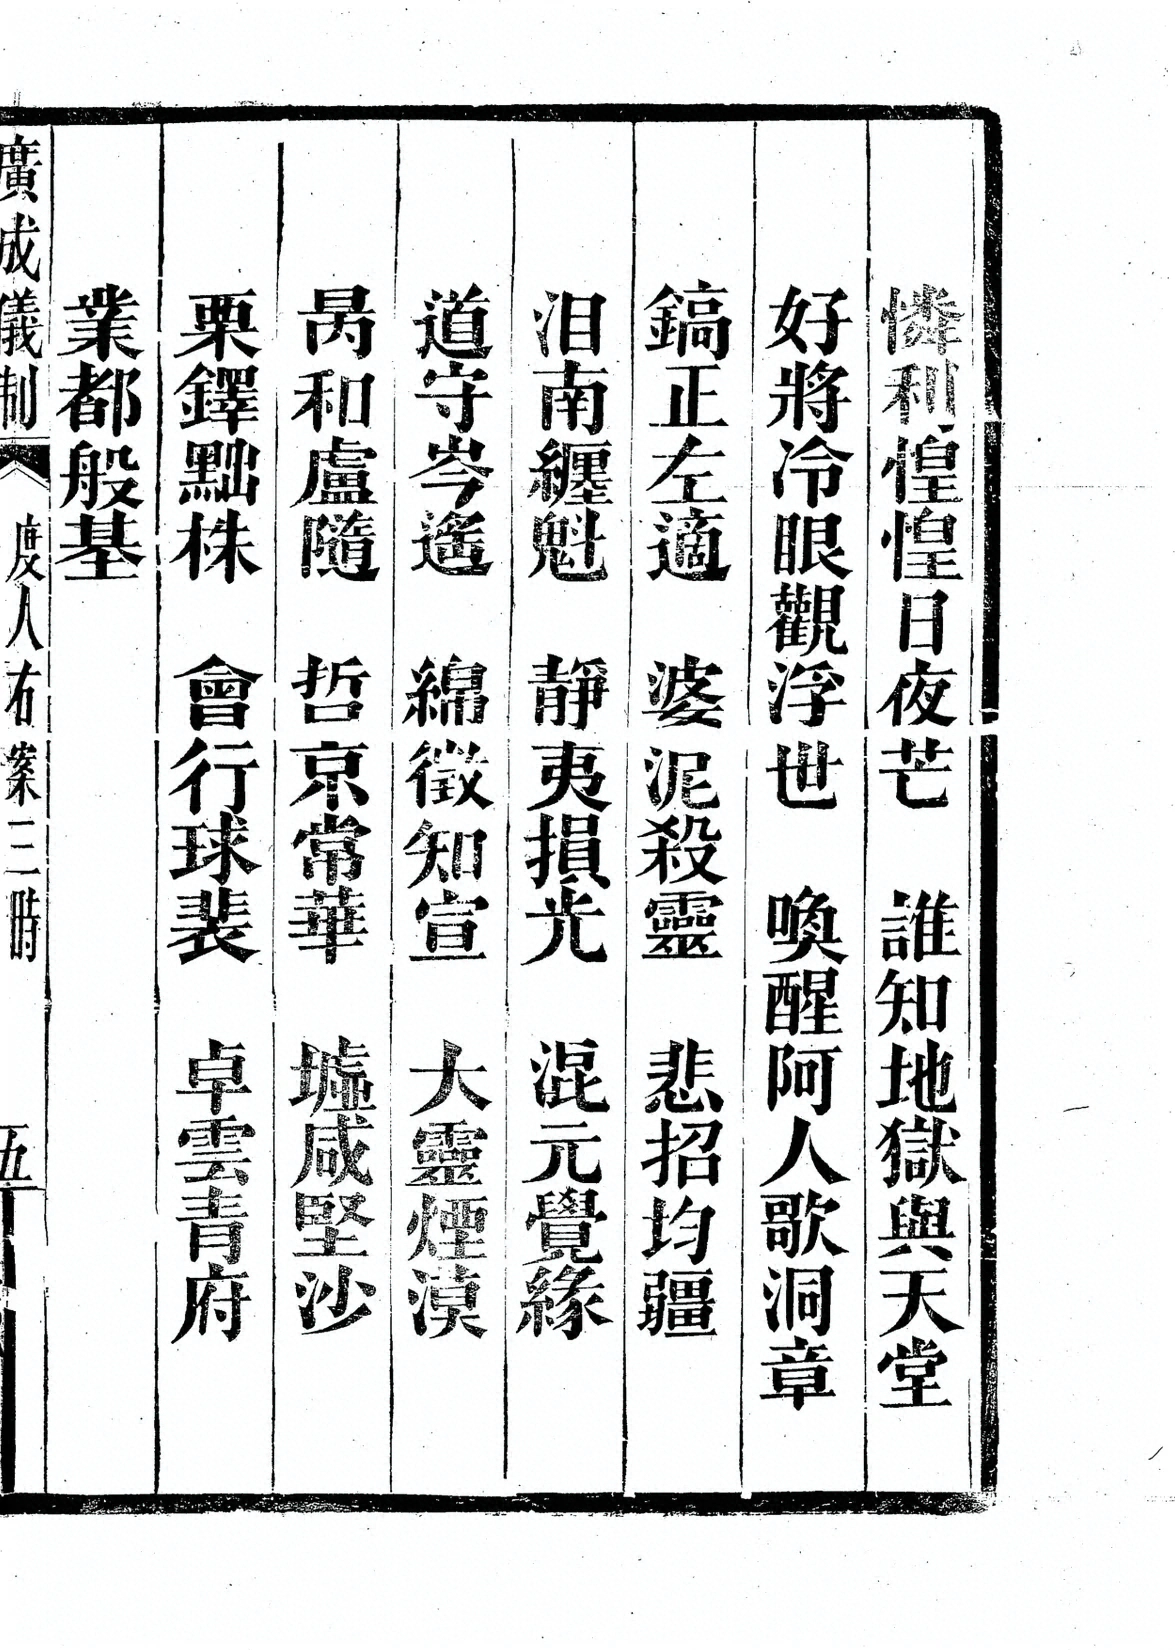 憐利惶惶日夜芒　誰知地獄與天堂
好將冷眼觀浮世　喚醒阿人歌洞章
鎬正左適　婆泥殺靈　悲招均疆
泪南纏魁　靜夷損光　混元覺緣
道守岑遙　綿徵知宣　大靈煙漠
昺和盧隨　哲京常華　墟咸堅沙
栗鐸黜株　會行球裴　卓雲青府
業都般基
廣成儀制　度人右案三時　五